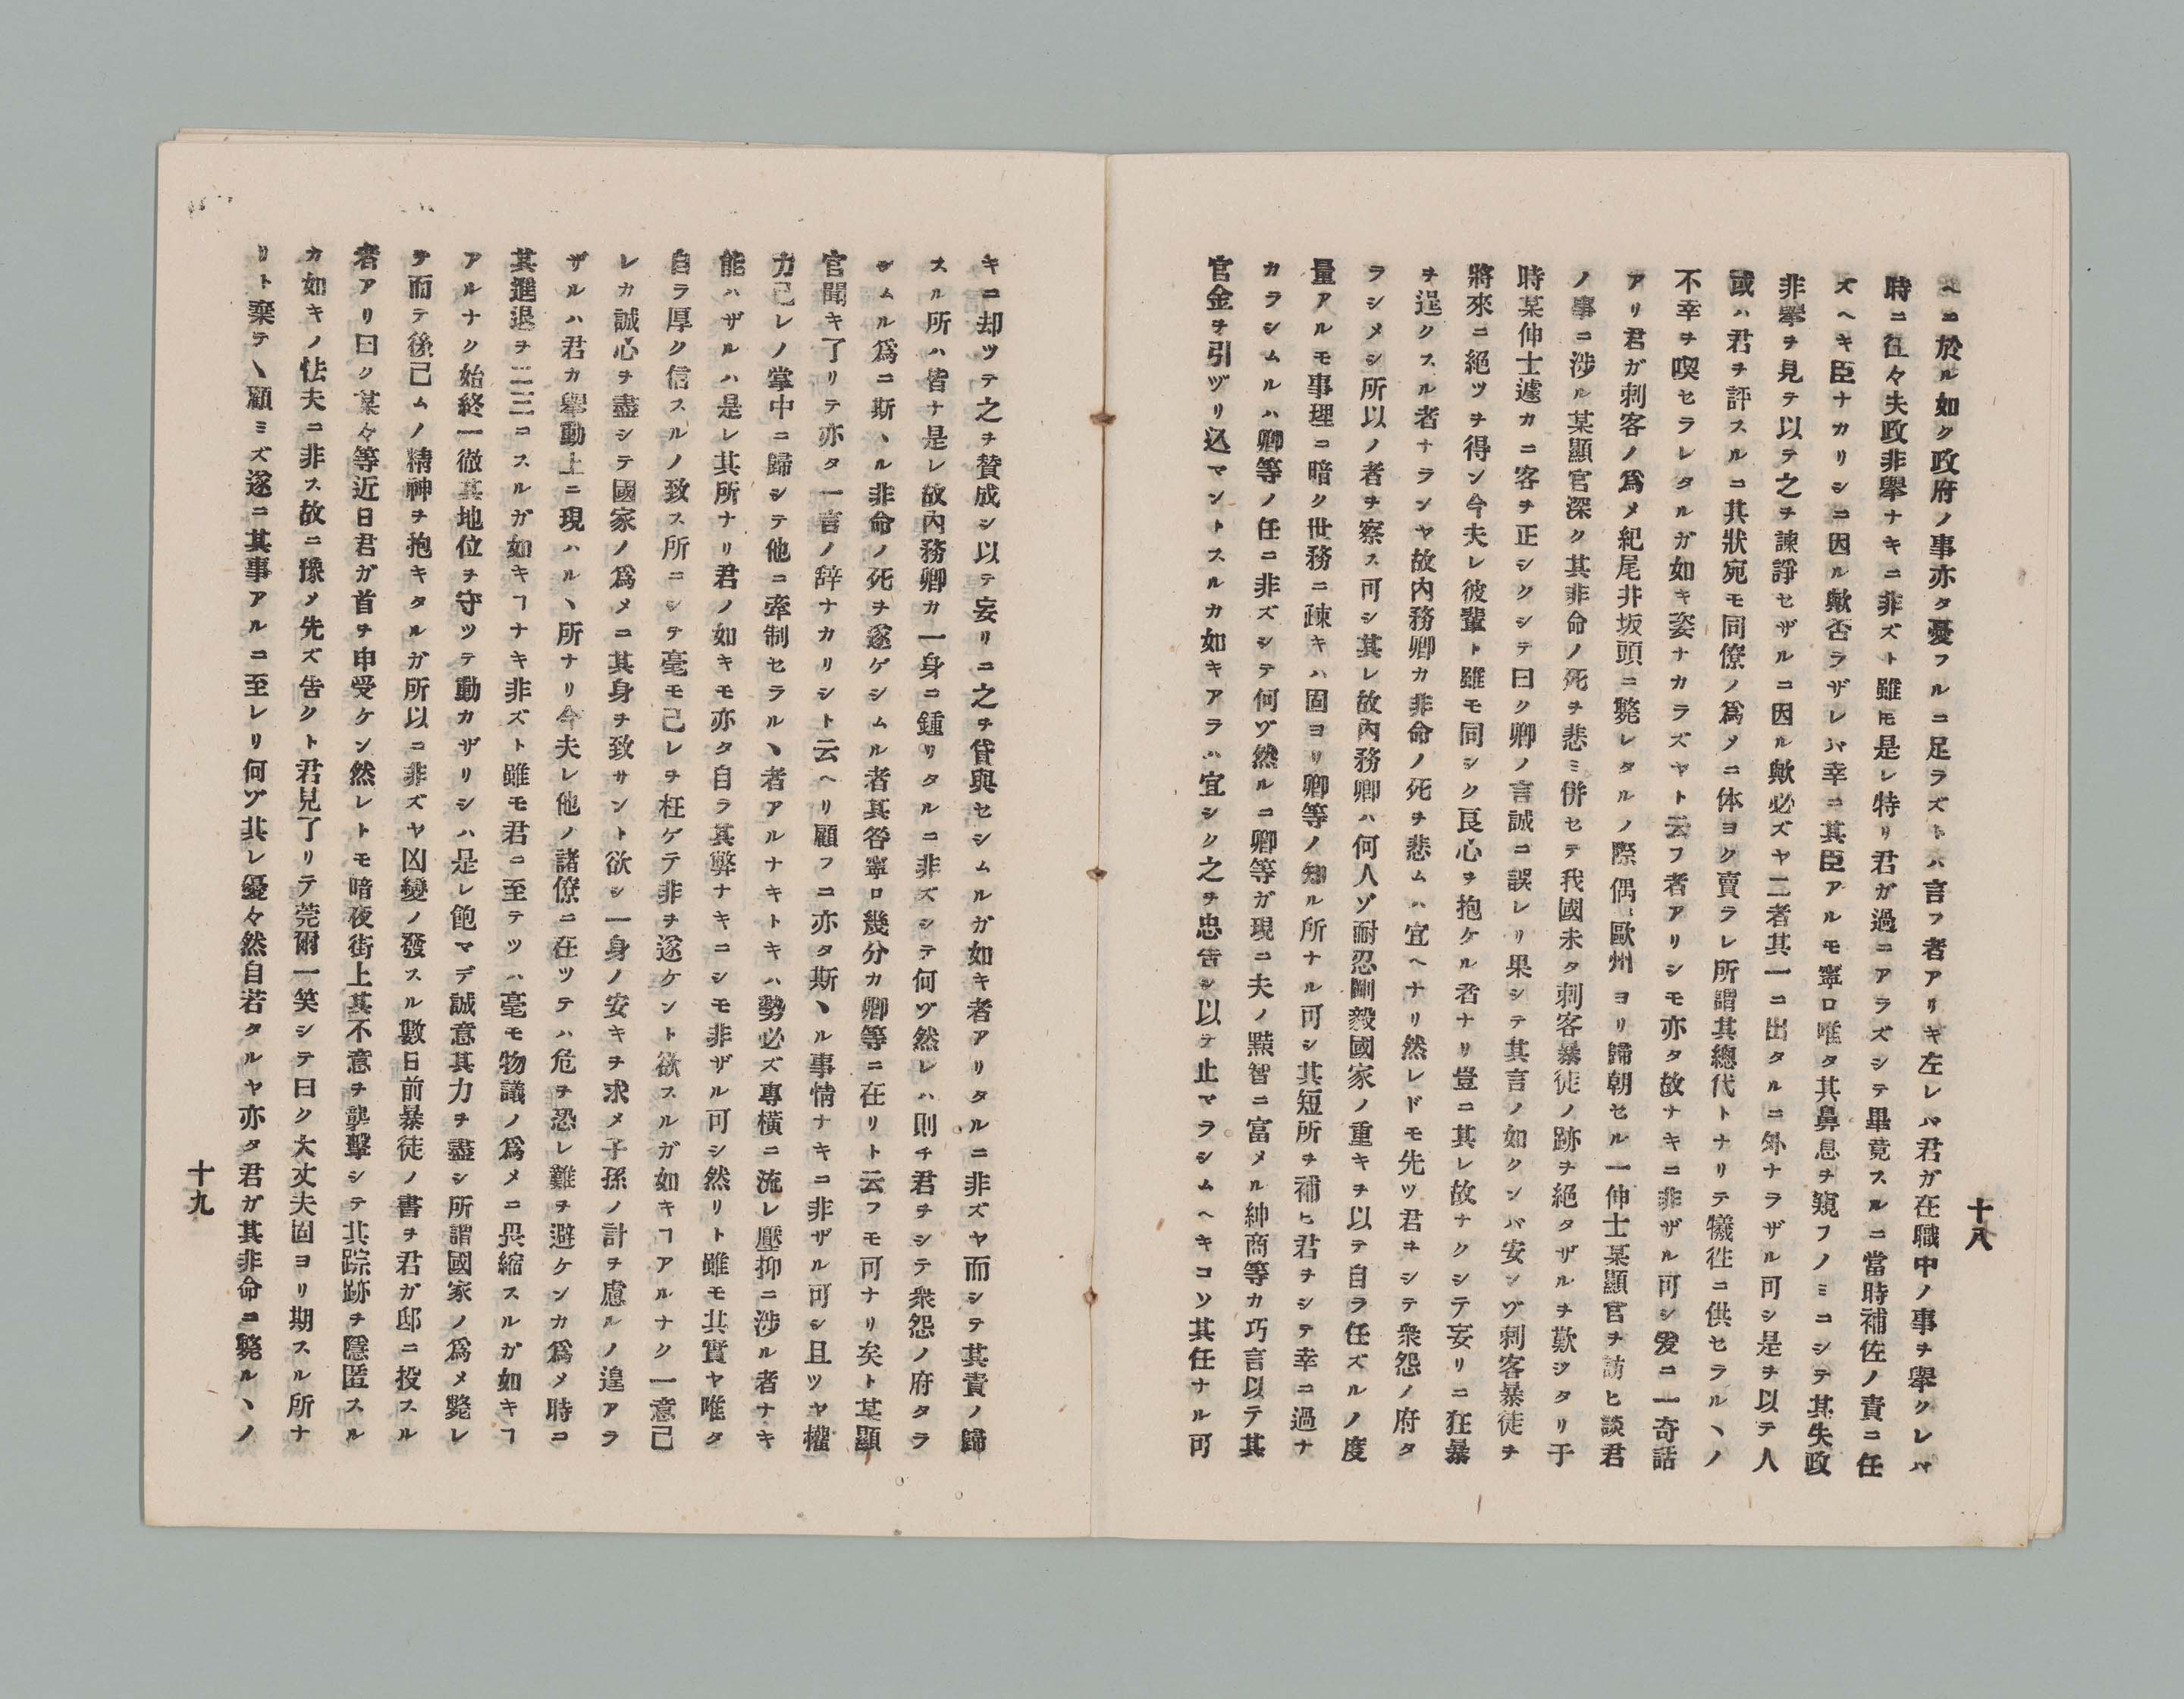 十八
ヘニ於ル如ク政府ノ事亦タ憂フルニ足ラズトハ言フ者アリキ左レバ君ガ在職中ノ事ヲ擧クレバ
時ニ徃々失政非擧ナキニ非ズト雖モ是レ特リ君ガ過ニアラズシテ畢竟スルニ當時補佐ノ責ニ任
ズヘキ臣ナカリシニ因ル歟否ラザレバ幸ニ其臣アルモ寧ロ唯タ其鼻息ヲ窺フノミニシテ其失政
非擧ヲ見テ以テ之ヲ諫諍セザルニ因ル歟必ズヤ二者其一ニ出タルニ外ナラザル可シ是ヲ以テ人
或ハ君ヲ評スルニ其狀宛モ同僚ノ爲メニ体ヨク賣ラレ所謂其總代トナリテ犠牲ニ供セラルヽノ
不幸ヲ喫セラレタルガ如キ姿ナカラズヤト云フ者アリシモ亦タ故ナキニ非ザル可シ爰ニ一奇話
アリ君ガ刺客ノ爲メ紀尾井坂頭ニ斃レタルノ際偶〻歐州ヨリ歸朝セル一伸士某顯官ヲ訪ヒ談君
ノ事ニ涉ル某顯官深ク其非命ノ死ヲ悲ミ併セテ我國未タ刺客暴徒ノ跡ヲ絕タザルヲ歎ツタリ于
時某伸士遽カニ客ヲ正シクシテ曰ク卿ノ言誠ニ誤レリ果シテ其言ノ如クンバ安ンゾ刺客暴徒ヲ
將來ニ絕ツヲ得ン今夫レ彼輩ト雖モ同シク良心ヲ抱ケル者ナリ豈ニ其レ故ナクシテ妄リニ狂暴
ヲ逞クスル者ナランヤ故內務卿カ非命ノ死ヲ悲ムハ宜ヘナリ然レドモ先ツ君ヲシテ衆怨ノ府タ
ラシメシ所以ノ者ヲ察ス可シ其レ故內務卿ハ何人ゾ耐忍剛毅國家ノ重キヲ以テ自ラ任ズルノ度
量アルモ事理ニ暗ク世務ニ疎キハ固ヨリ卿等ノ知ル所ナル可シ其短所ヲ補ヒ君ヲシテ幸ニ過ナ
カラシムルハ卿等ノ任ニ非ズシテ何ゾ然ルニ卿等ガ現ニ夫ノ黠智ニ富メル紳商等カ巧言以テ其
官金ヲ引ヅリ込マントスルカ如キアラハ宜シク之ヲ忠吿シ以テ止マラシムヘキコソ其任ナル可
キニ却ツテ之ヲ賛成シ以テ妄リニ之ヲ貸與セシムルガ如キ者アリタルニ非ズヤ而シテ其責ノ歸
スル所ハ皆ナ是レ故內務卿カ一身ニ鍾リタルニ非ズシテ何ゾ然レハ則チ君ヲシテ衆怨ノ府タラ
シムル爲ニ斯ヽル非命ノ死ヲ遂ゲシムル者其咎寧ロ幾分カ卿等ニ在リト云フモ可ナリ矣ト某顯
官聞キ了リテ亦タ一言ノ辞ナカリシト云ヘリ顧フニ亦タ斯ヽル事情ナキニ非ザル可シ且ツヤ權
力己レノ掌中ニ歸シテ他ニ牽制セラルヽ者アルナキトキハ勢必ズ專橫ニ流レ壓抑ニ涉ル者ナキ
能ハザルハ是レ其所ナリ君ノ如キモ亦タ自ラ其弊ナキニシモ非ザル可シ然リト雖モ其實ヤ唯タ
自ラ厚ク信スルノ致ス所ニシテ毫モ己レヲ枉ゲテ非ヲ遂ケント欲スルガ如キヿアルナク一意己
レカ誠心ヲ盡シテ國家ノ爲メニ其身ヲ致サント欲シ一身ノ安キヲ求メ子孫ノ計ヲ慮ルノ遑アラ
ザルハ君カ擧動上ニ現ハルヽ所ナリ今夫レ他ノ諸僚ニ在ツテハ危ヲ恐レ難ヲ避ケンカ爲メ時ニ
其進退ヲ二三ニスルガ如キヿナキ非ズト雖モ君ニ至テツハ毫モ物議ノ爲メニ畏縮スルガ如キヿ
アルナク始終一徹其地位ヲ守ツテ動カザリシハ是レ飽マデ誠意其力ヲ盡シ所謂國家ノ爲メ斃レ
ヲ而テ後己ムノ精神ヲ抱キタルガ所以ニ非ズヤ凶變ノ發スル數日前暴徒ノ書ヲ君ガ邸ニ投スル
者アリ曰ク某々等近日君ガ首ヲ申受ケン然レトモ暗夜街上其不意ヲ襲擊シテ其踪跡ヲ隱匿スル
カ如キノ怯夫ニ非ス故ニ豫メ先ズ吿クト君見了リテ莞爾一笑シテ曰ク大丈夫固ヨリ期スル所ナ
リト棄テヽ顧ミズ遂ニ其事アルニ至レリ何ゾ其レ優々然自若タルヤ亦タ君ガ其非命ニ斃ルヽノ
十九